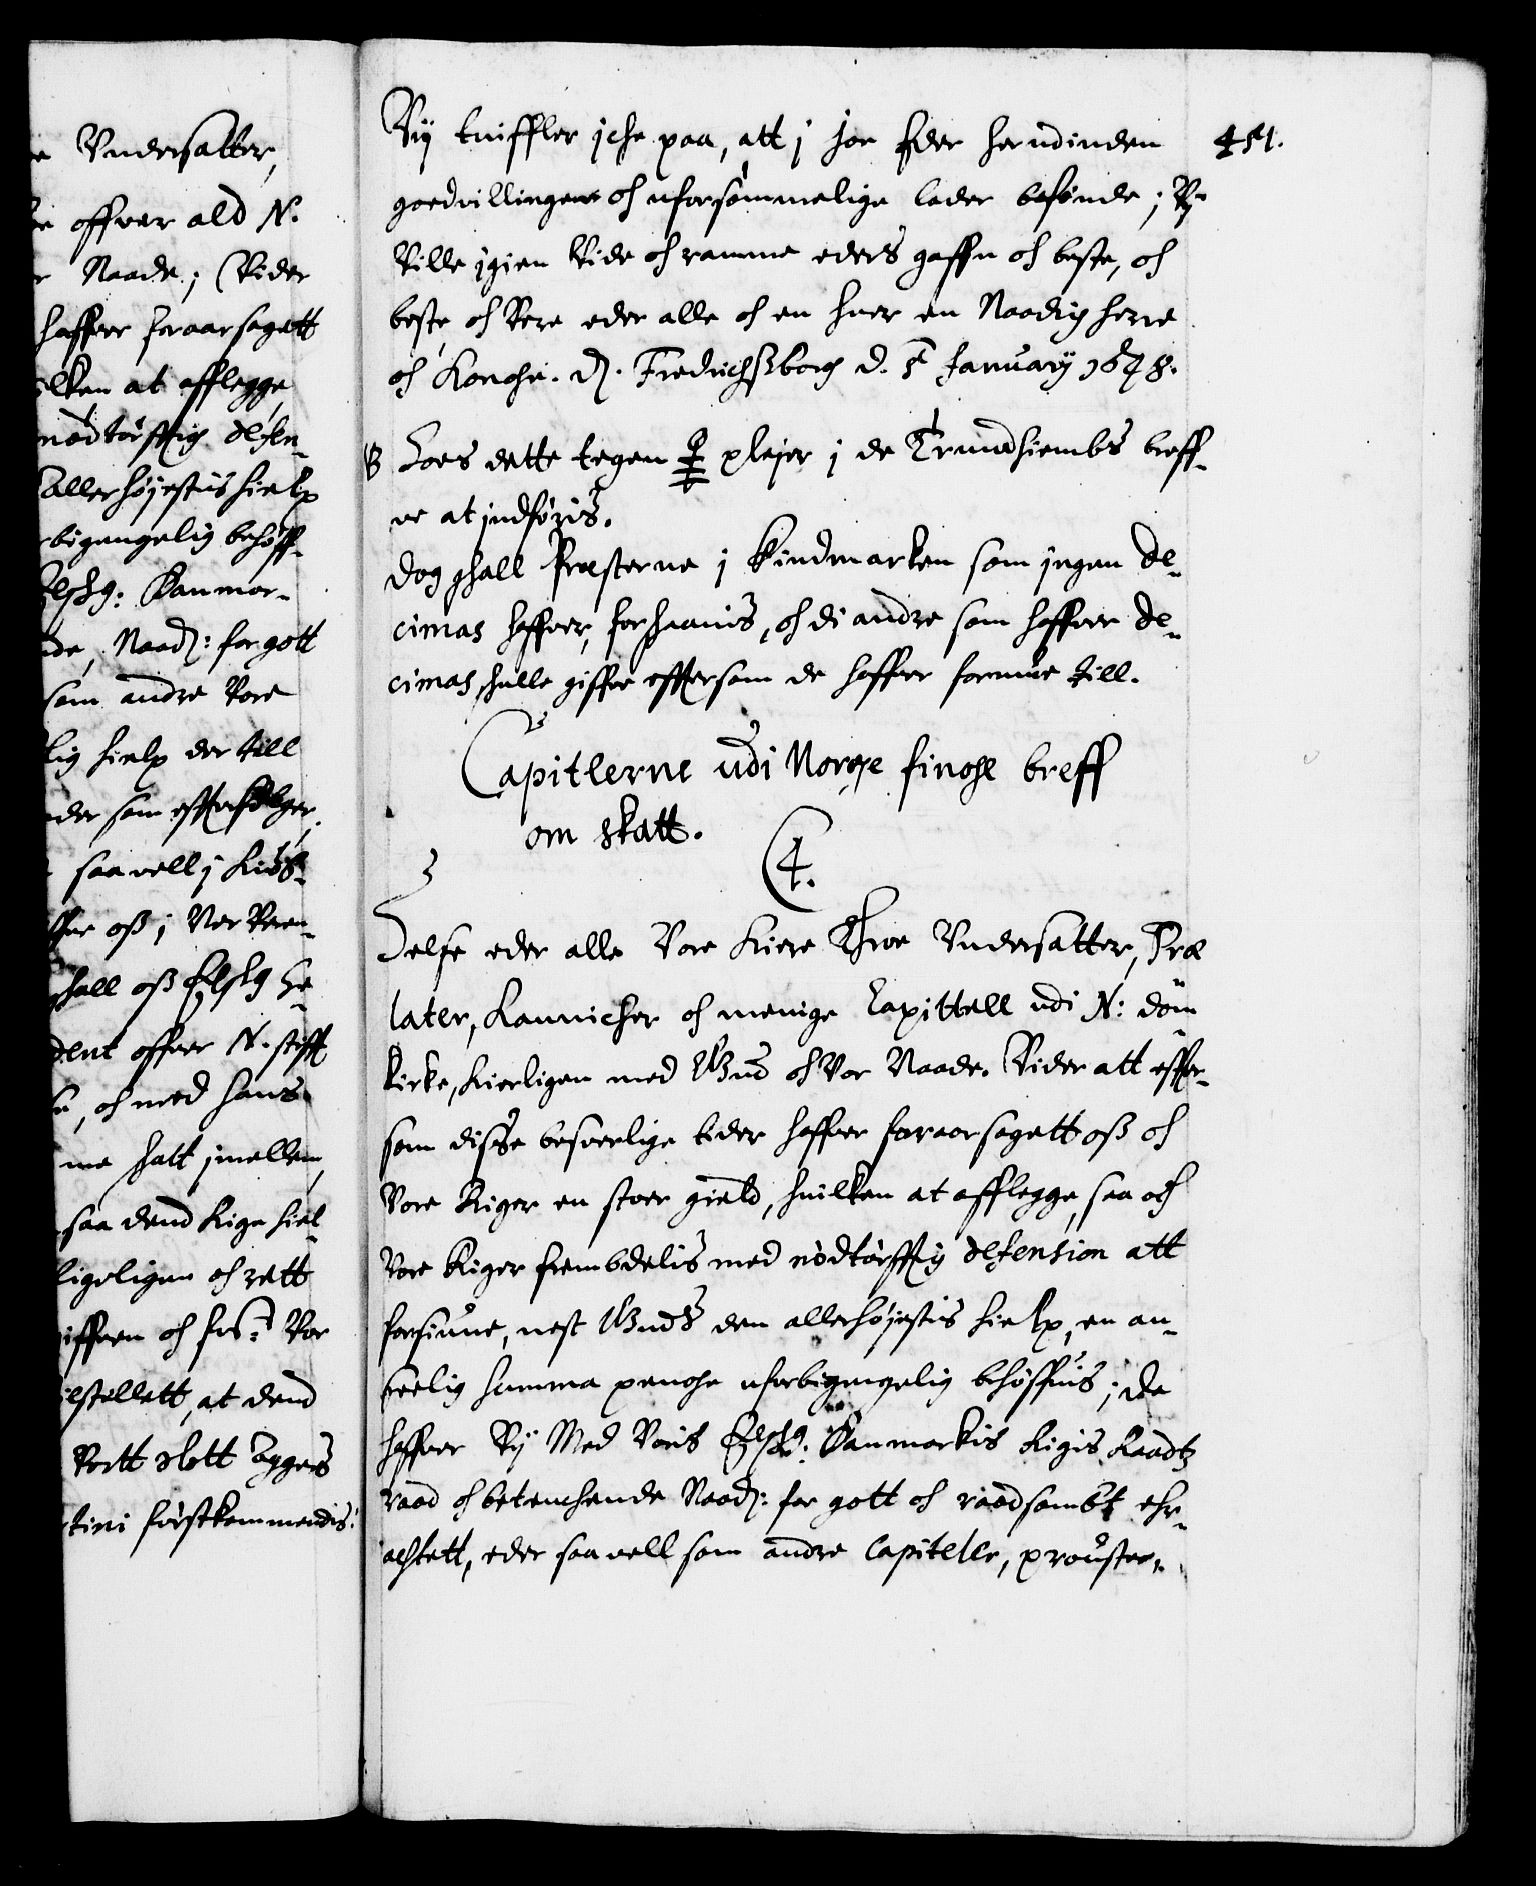 e Vndersatter,
offver ald N.
Naade; Vider
haffver foraarsagett
ilken at afflegge
nødtørfftig defen-
Allerhøjestis hielp
rbigengelig behøff-
Elshg: Danmar-
de, Naad: for gott
som andre Vore
lig hielp der till
der som effterfølger,
saa vell j Kiøb-
ffve oß; Vor Rein-
shall oß Elshg He
dent offver N. stifft
e, oh med hans
me shatt jmellem
saa dend Rige hiel-
ligeligen oh rett
iffven oh frs: Vor
ilstellett, at dend
Vortt slott Aggers
tini førstkommendis:
451.
Vij tuiffler jche paa, att j jo Eder herudinden
goedvilligen oh uforsømmelige lader befinde; Vij
Ville jgien Vide oh ramme eders gaffn oh beste, oh
beste, oh Vere eder alle oh en huer en Naadig herre
oh Konghe. D. Fredrichsborg d. 5 January 1648.
B Hoes dette tegen plejer j de Trundhiembs breff-
ve at jndføris.
Dog shall Præsterne j Findmarken som jngen de-
cimas haffver, forshaanis, oh di andre som haffver de-
cimas, shulle giffve efftersom de haffver formue till.
Capitlerne udi Norge finghe breff
om skatt.
4.
Helse eder alle Vore Kiere Throe Vndersatter, Præ
later, Kannicher oh menige Capittell udi N: dom
kirke, kierligen med Gud oh Vor Naade. Vider att effter-
som disse besverlige tider haffver foraarsagett oß oh
Vore Riger en stoer gield, huilken at afflegge, saa och
Vore Riger frembdelis med nødtørfftig defension att
forsiune, nest Guds den allerhøjestis hielp, en an-
seelig summa penghe uforbigengelig behøffuis; da
haffver Vij Med Voris Elshg: Danmarkis Rigis Raadtz
raad oh betenchende Naad: for gott oh raadsambt ehr-
achtett, eder saa vell som andre Capiteler, prouster,